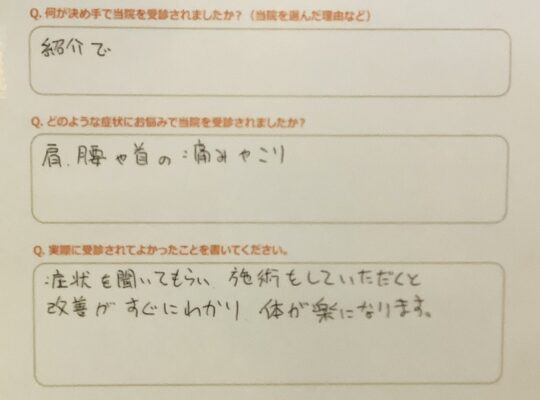 Q. 何が決め手で当院を受診されましたか？（当院を選んだ理由など）
紹介で
Q. どのような症状にお悩みで当院を受診されましたか？
肩、腰や首の痛みやこり
Q. 実際に受診されてよかったことを書いてください。
症状を聞いてもらい 施術をしていただくと
改善がすぐにわかり 体が楽になります。